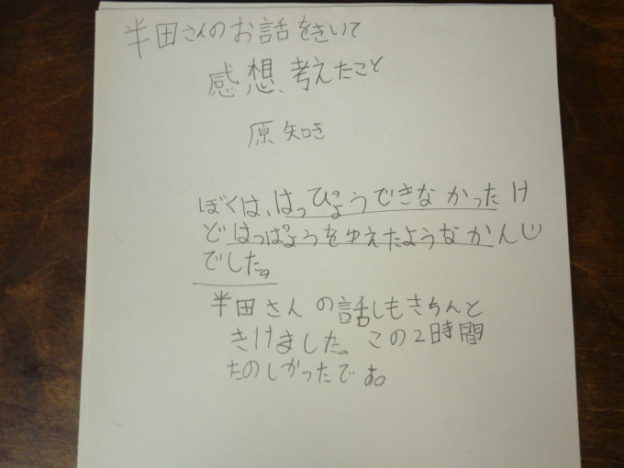 半田さんのお話をきいて
感想、考えたこと
原 知き
ぼくは、はっぴょうできなかったけ
どはっぴょうをゆえたようなかんじ
でした。
半田さんの話しもきちんと
きけました。この2時間
たのしかったです。